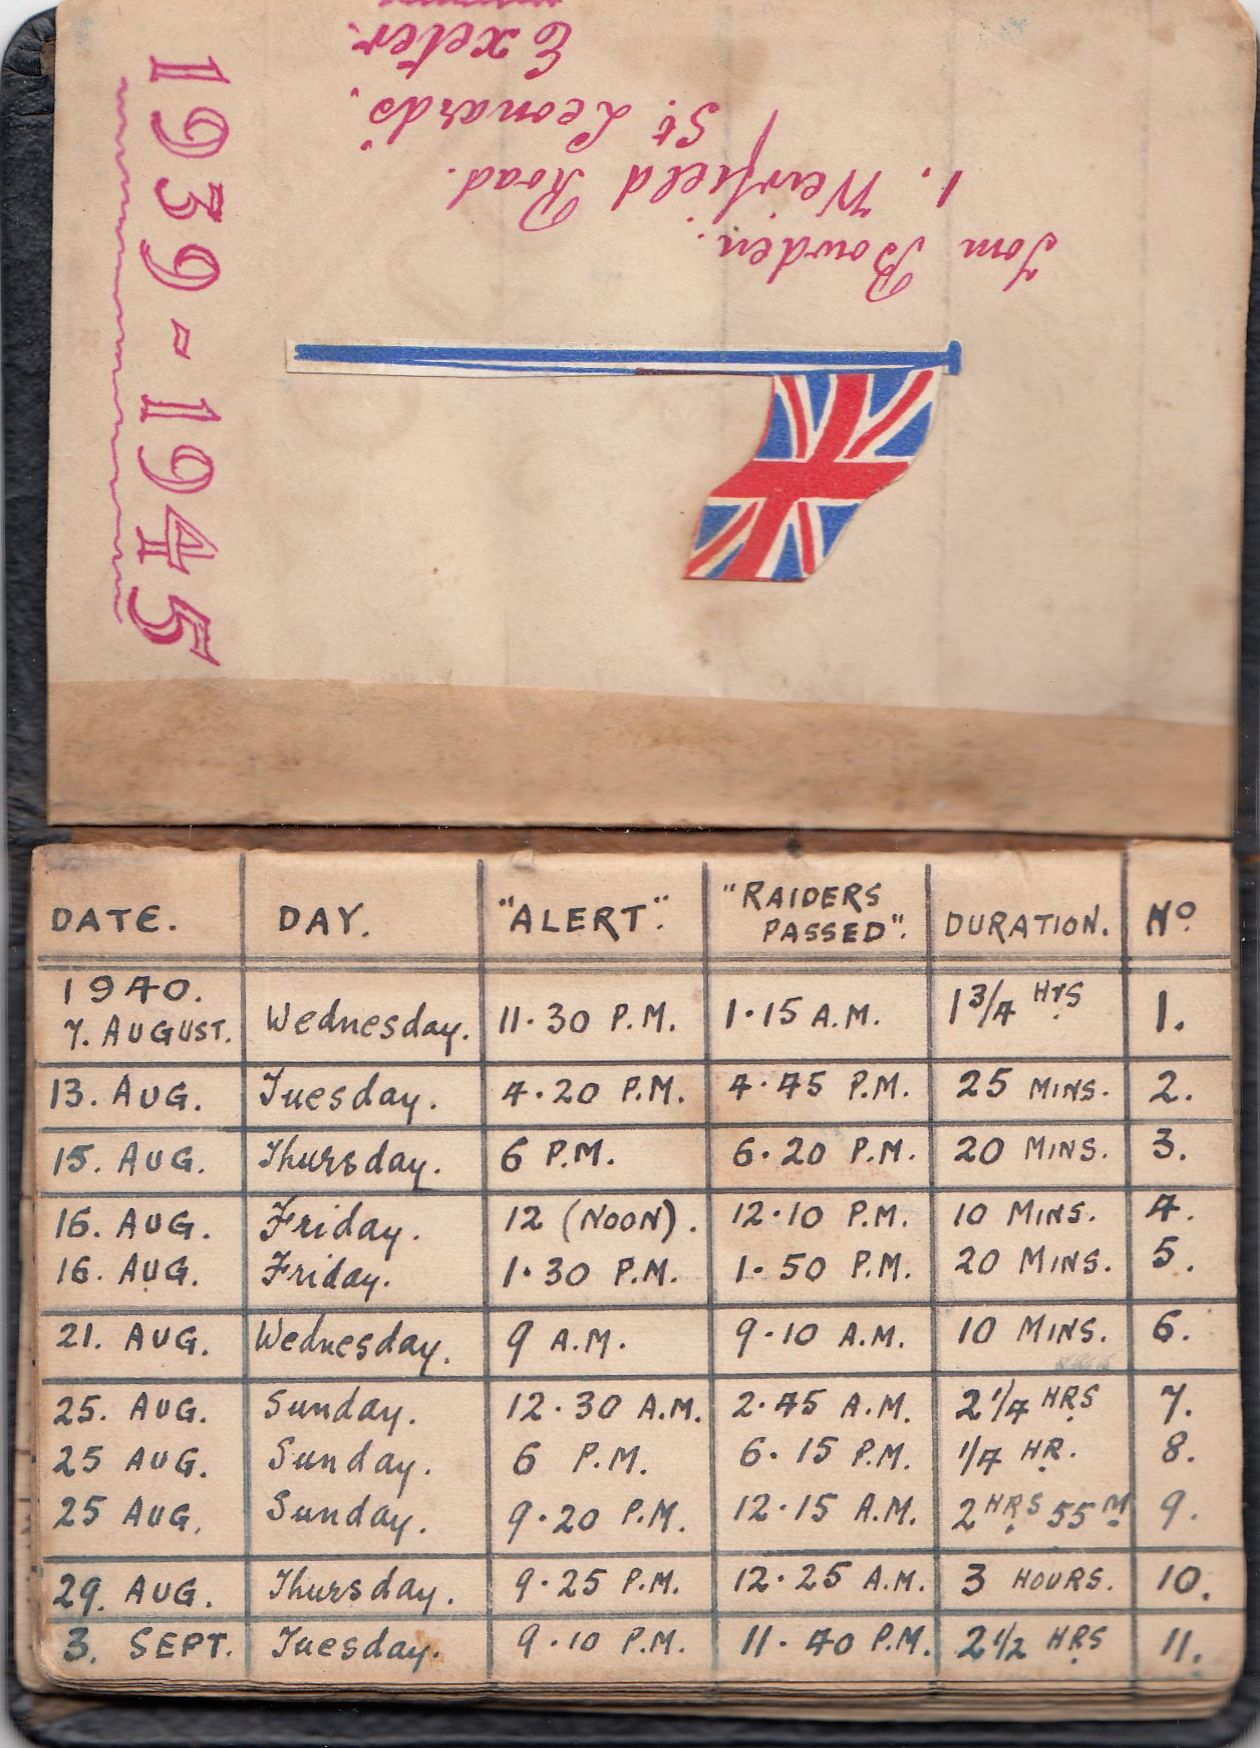 Tom Bowden.
1. Weirfield Road.
St. Leonards.
Exeter.
1939-1945
DATE. DAY. "ALERT". "RAIDERS PASSED". DURATION. No
1940.
7. AUGUST. Wednesday. 11.30 P.M. 1.15 A.M. 1 3/4 HRS 1.
13. AUG. Tuesday. 4.20 P.M. 4.45 P.M. 25 MINS. 2.
15. AUG. Thursday. 6 P.M. 6.20 P.M. 20 MINS. 3.
16. AUG. Friday. 12 (NOON). 12.10 P.M. 10 MINS. 4.
16. AUG. Friday. 1.30 P.M. 1.50 P.M. 20 MINS. 5.
21. AUG. Wednesday. 9 A.M. 9.10 A.M. 10 MINS. 6.
25. AUG. Sunday. 12.30 A.M. 2.45 A.M. 2 1/4 HRS 7.
25 AUG. Sunday. 6 P.M. 6.15 P.M. 1/4 HR. 8.
25 AUG. Sunday. 9.20 P.M. 12.15 A.M. 2 HRS 55 M 9.
29. AUG. Thursday. 9.25 P.M. 12.25 A.M. 3 HOURS. 10.
3. SEPT. Tuesday. 9.10 P.M. 11.40 P.M. 2 1/2 HRS 11.